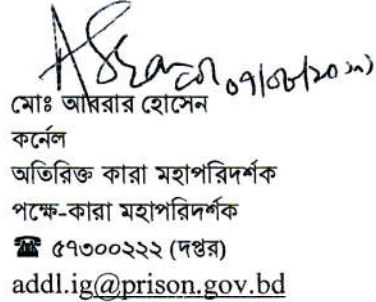 মোঃ আবরার হোসেন
কর্নেল
অতিরিক্ত কারা মহাপরিদর্শক
পক্ষে-কারা মহাপরিদর্শক
☎ ৫৭৩০০২২২ (দপ্তর)
addl.ig@prison.gov.bd